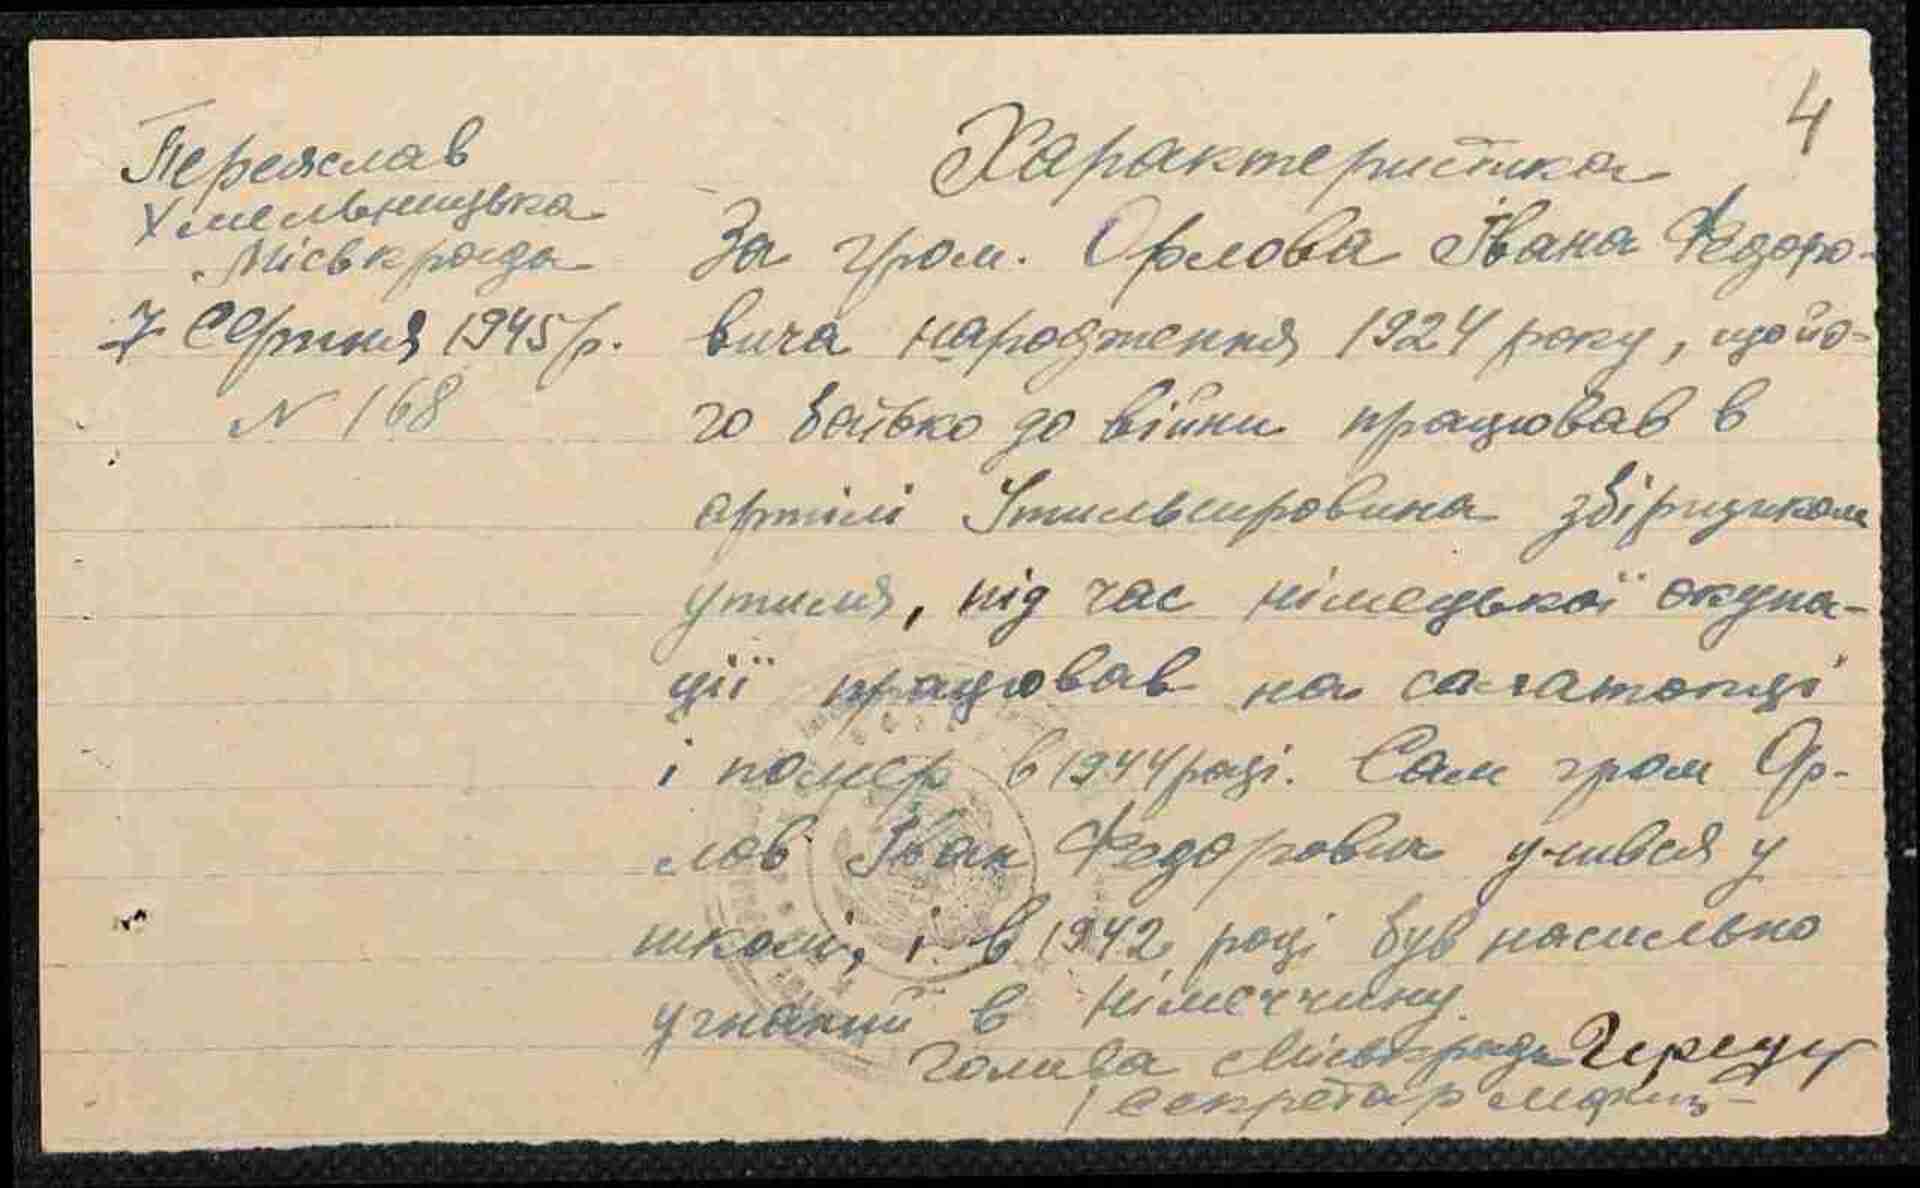 4
Переяслав
Хмельницька
Міськрада
7 Серпня 1945 р.
N 168
Характеристика
За гром. Орлова Івана Федоро-
вича народження 1924 року, що йо-
го батько до війни працював в
артілі Утильсировина збірщиком
утиля, під час німецької окупа-
ції працював на
і помер в 1944 році. Сам гром Ор-
лов Іван Федорович учився у
школі, і в 1942 році був насильно
угнаний в Німеччину.
Голова Міськради
Секретар